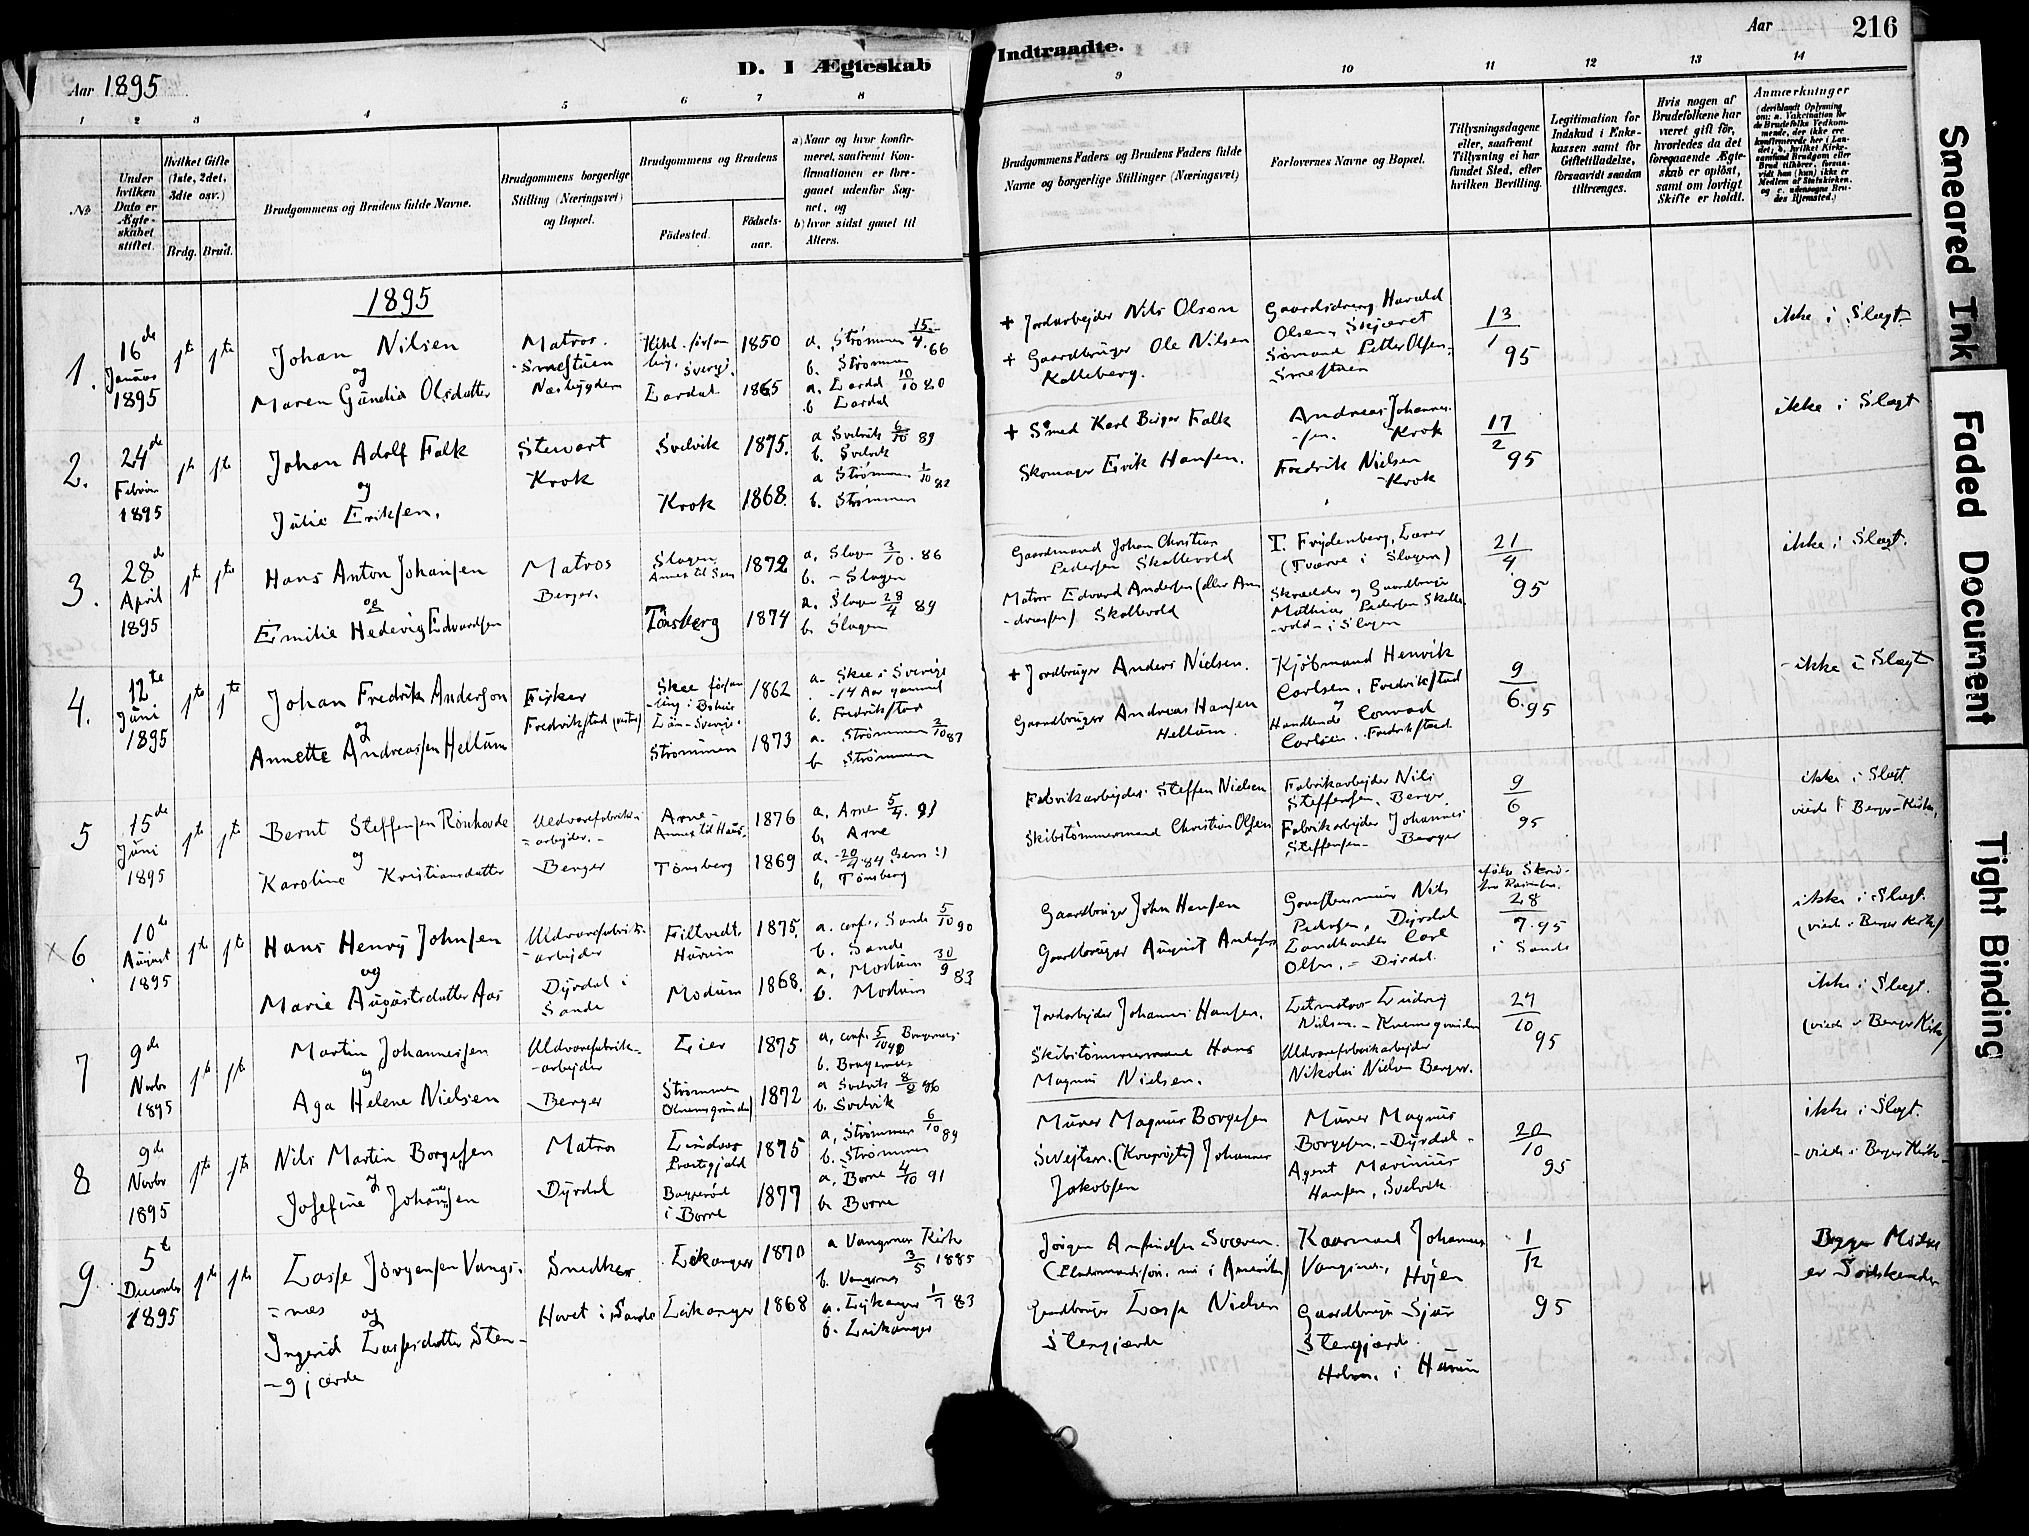 Aar 1895
D. I Ægteskab
Indtraadte.
Aar
216
1 2 3 4 5 6 7 8
9 10 11 12 13 14
No
Under hvilken Dato er Ægteskabet stiftet.
Hvilket Gifte (1ste, 2det, 3dte osv.)
Brdg. Brud.
Brudgommens og Brudens fulde Navne.
Brudgommens borgerlige Stilling (Næringsvei) og Bopæl.
Brudgommens og Brudens
Födested.
Födsels-aar.
a) Naar og hvor konfirmeret, saafremt Konfirmationen er foreganet udenfor Sognet, og
b) hvor sidst gaaet til Alters.
Brudgommens Faders og Brudens Faders fulde Navne og borgerlige Stillinger (Næringsvei)
Forlovernes Navne og Bopæl.
Tillysningsdagene eller, saafremt Tillysning ei har fundet Sted, efter hvilken Bevilling.
Legitimation for Indskud i Enkekassen samt for Giftetilladelse, forsaavidt saadan tiltrænges.
Hvis nogen af Brudefolkene har været gift för, hvorledes da det foregaaende Ægteskab er oplöst, samt om lovligt Skifte er holdt.
Anmærkninger
1895
1.
16de
Januar
1895
1ste 1ste
Johan Nilsen
og
Maren Gundia Olsdatter
Matros.
Smestuen
Næsbygden
Sverig.
1850
Lardal 1865
a. Strømmen 15/4. 66
b. Strømmen
a. Lardal 10/10 80
b Lardal
+ Jordarbejder Nils Olson
+ Gaardbruger Ole Nilsen
Kolleberg.
Gaardsdreng Harald
Olsen, Skjæret
Sømand Petter Olsen,
Smestuen
13/1 95
ikke i Slægt
2.
24de
Februar
1895
1ste 1ste
Johan Adolf Falk
og
Julie Eriksen.
Stewart
Krok
Svelvik 1875.
Krok 1868.
a Svelvik 6/10 89
b. Svelvik
a Strømmen 1/10 82
b. Strømmen
+ Smed Karl Birger Falk
Skomager Erik Hansen.
Andreas Johannes-
-sen. Krok
Fredrik Nielsen
Krok
17/2 95
ikke i Slægt
3.
28de
April
1895
1ste 1ste
Hans Anton Johansen
og
Emilie Hedevig Edvardsen
Matros
Berger.
Slagen
Annex til Sem
1872
Tönsberg 1874
a. Slagen 3/10. 86
b. - Slagen
a. Slagen 28/4 89
b. Slagen
Gaardmand Johan Christian
Pedersen Skallevold
Matros Edvard Andersen (eller An-
-dreassen) Skallevold
T. Frydenberg, Lærer
(Tværve i Slagen)
Skrædder og Gaardbruger
Mathias Pedersen Skalle-
-vold i Slagen
21/4 95
ikke i Slægt.
4.
12te
Juni
1895
1ste 1ste
Johan Fredrik Anderson
og
Annette Andreassen Hellum
Fisker
Fredrikstad (vestre)
Skee forsam-
-ling i Bohus
Län - Sverige.
1862
Strømmen 1873
a- Skee i Sverige
-14 Aar gammel
b. Fredrikstad
a. Strømmen 2/10 87
b Strømmen
+ Jordbruger Anders Nielsen.
Gaardbruger Andreas Hansen
Hellum.
Kjöbmand Henrik
Carlsen, Fredrikstad
og
Handlende Conrad
Carlsen. Fredrikstad
9/6. 95
- ikke i Slægt
5
15de
Juni
1895
1ste 1ste
Bernt Steffensen
og
Karoline Kristiansdatter
Uldvarefabrik-
-arbejder.
Berger
1876
Tönsberg 1869
b. Tönsberg
Fabrikarbejder Steffen Nielsen
Skibstömmermand Christian Olsen
Fabrikarbejder Nils
Steffensen, Berger
Fabrikarbejder Johannes
Steffensen Berger
9/6 95
ikke i Slægt
viede i Berger Kirke,
x 6
10de
August
1895
1ste 1ste
Hans Henry Johnsen
og
Marie Augustsdatter Aas
Uldvarefabrik-
-arbejder
Dyrdal i
Sande
Filtvedt,
Hurum
1875.
Modum 1868.
a. conf. Sande 5/10 90
b. Sande
a, Modum 30/9 83
b. Modum
Gaardbruger John Hansen
Gaardbruger August Andersen
Nils
Pedersen, Dyrdal
Landhandler Carl
Olsen, - Dyrdal.
28
7. 95
i Sande
ikke i Slægt.
(viede i Berger Kirke)
7
9de
Novbr
1895
1ste 1ste
Martin Johannesen
og
Aga Helene Nielsen
Uldvarefabrik-
-arbejder
Berger
Lier 1875
Strømmen
1872
a, conf. 5/10 90 Bragernes
b. Bragernes
a Svelvik 8/8 86
b. Svelvik
Jordarbejder Johannes Hansen.
Skibstömmermand Hans
Magnus Nielsen.
Letmatros Ludvig
Nielsen.
Uldvarefabrikarbejder
Nikolai Nielsen Berger.
24/10 95
ikke i Slægt.
(viede i Berger Kirke)
8
9de
Novbr
1895
1ste 1ste
Nils Martin Borgesen
og
Josefine Johannesen
Matros
Dyrdal
Præstegjeld
1875
i Borre
1877
a, Strømmen 6/10 89
b. Strømmen
a, Borre 4/10 91
b. Borre
Murer Magnus Borgesen
Johannes
Jakobsen
Murer Magnus
Borgesen. - Dyrdal -
Agent Marinius
Hansen, Svelvik
20/10 95
ikke i Slægt.
- viede i Berger Kirke
9.
5te
December
1895
1ste 1ste
Lasse Jörgensen Vangs-
= nes og
Ingerid Lassesdatter Sten-
- gjærde
Snedker
Hovet i Sande
Leikanger 1870
Leikanger 1868
a Vangsnes Kirke
3/5 1885
b. Vangsnes
a. Leikanger 1/7 83
b. Leikanger
Jörgen
Gaardbruger Lasse Nielsen
Stengjærde
Kaarmand Johannes
Vangsnes, Höjen
Gaardbruger Sjur
Stengjærde
i Hurum
1/12 95
er Södskende
Smeared Ink
Faded Document
Tight Binding